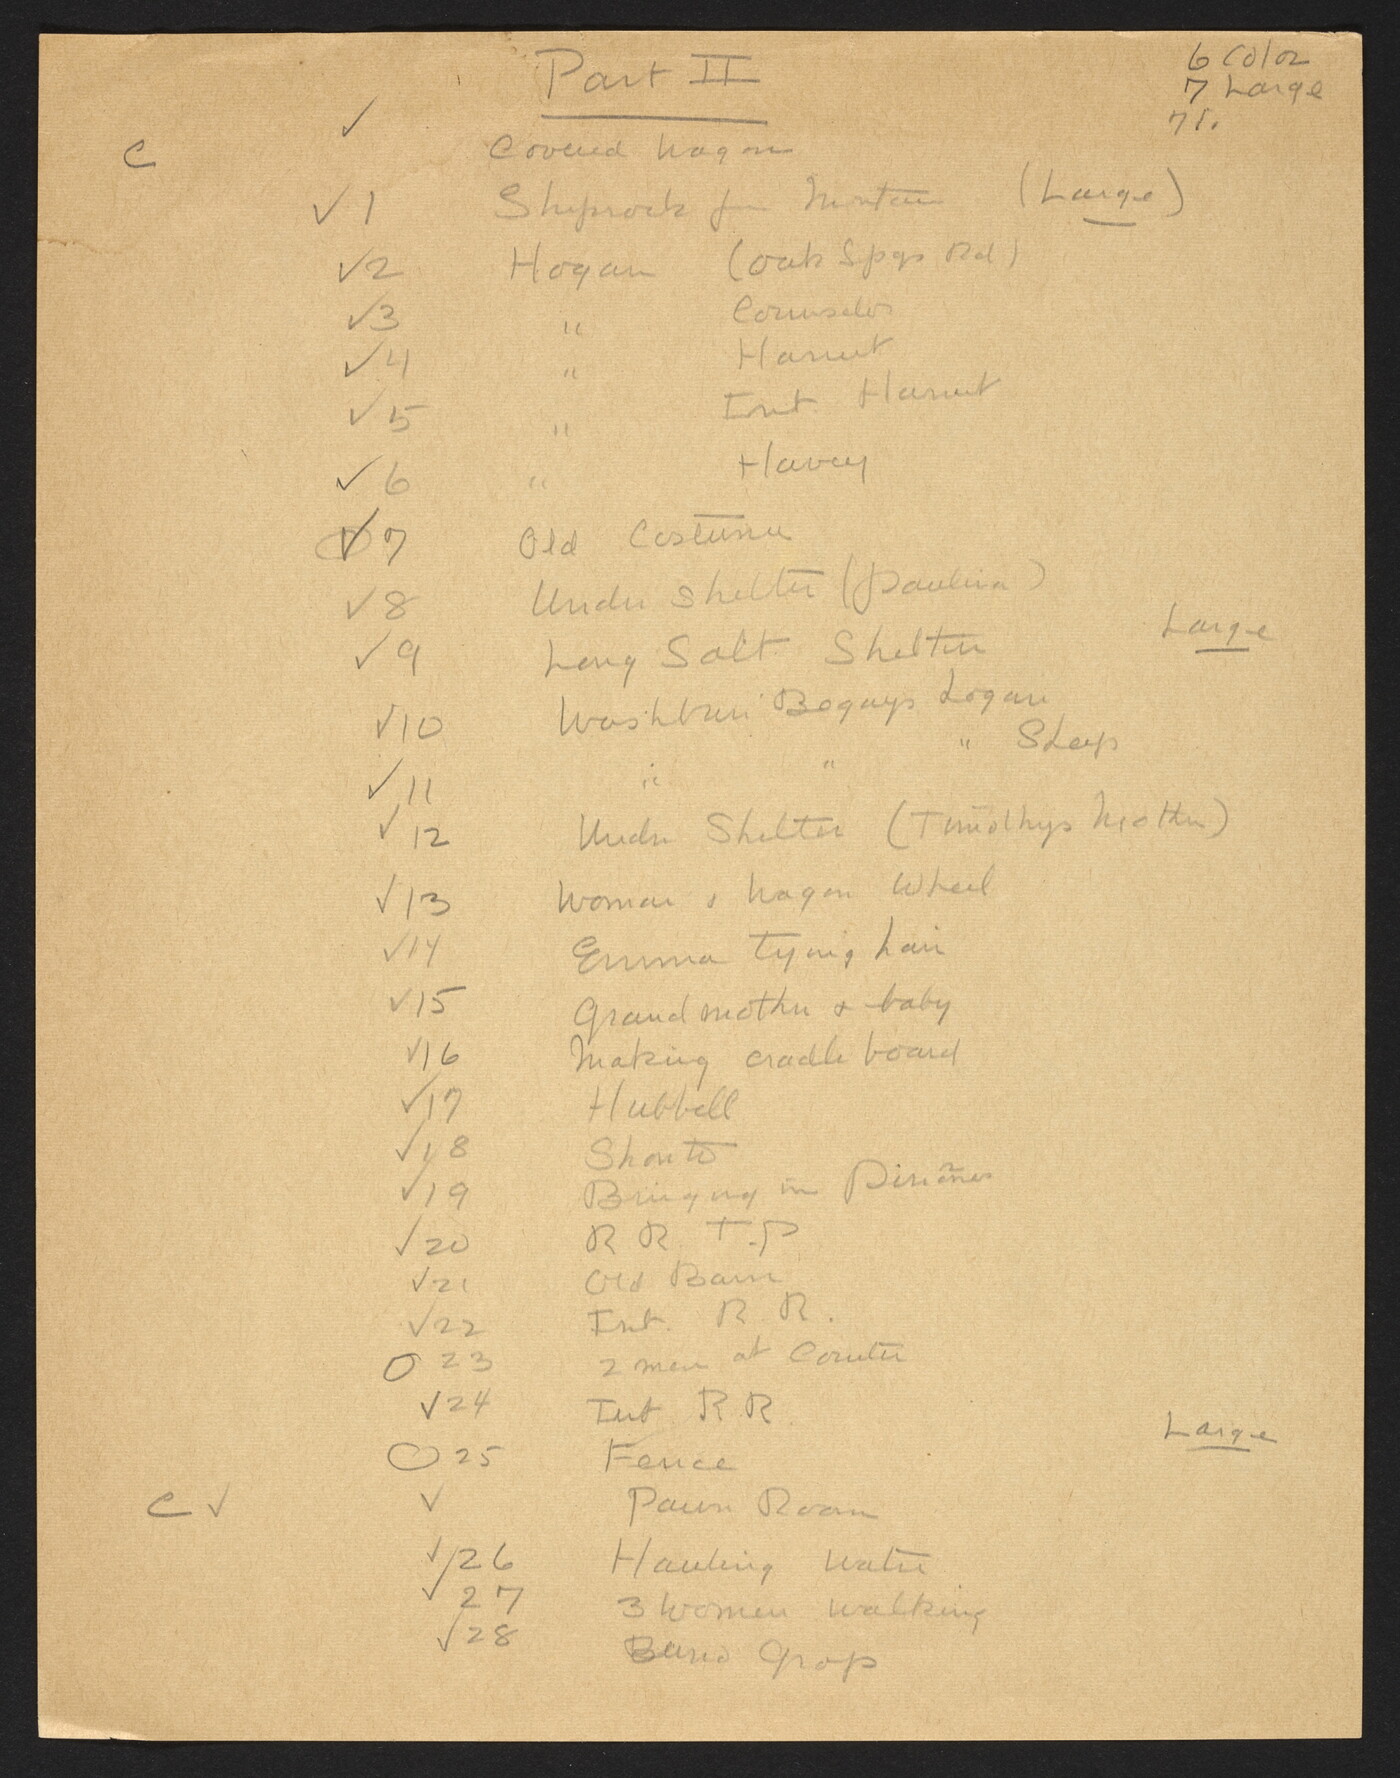 Part II
6 Color
7 Large
71.
C ✓ Covered Wagon
✓ 1 Shiprock fm Mountain (Large)
✓ 2 Hogan (Oak Spgs Rd)
✓ 3 " Counselor
✓ 4 " Harriet
✓ 5 " Int. Harriet
✓ 6 " Harvey
✓ 7 Old Costume
✓ 8 Under Shelter (Paulina)
✓ 9 Long Salt Shelter Large
✓ 10 Begays hogan
✓ 11 " " " Sheep
✓ 12 Under Shelter (Timothys Mother)
✓ 13 Woman & Wagon Wheel
✓ 14 Emma tying hair
✓ 15 Grandmother & baby
✓ 16 Making cradle board
✓ 17 Hubbell
✓ 18 Shonto
✓ 19 Bringing in Piñones
✓ 20 R R. T.P
✓ 21 Old Barn
✓ 22 Int. R. R.
O 23 2 men at Counter
✓ 24 Int. R. R.
O 25 Fence Large
C ✓ ✓ Pawn Room
✓ 26 Hauling Water
✓ 27 3 Women walking
✓ 28 Group